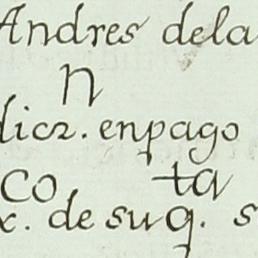 Andres dela
n
dicz. enpago
co ta
x. de su q. s